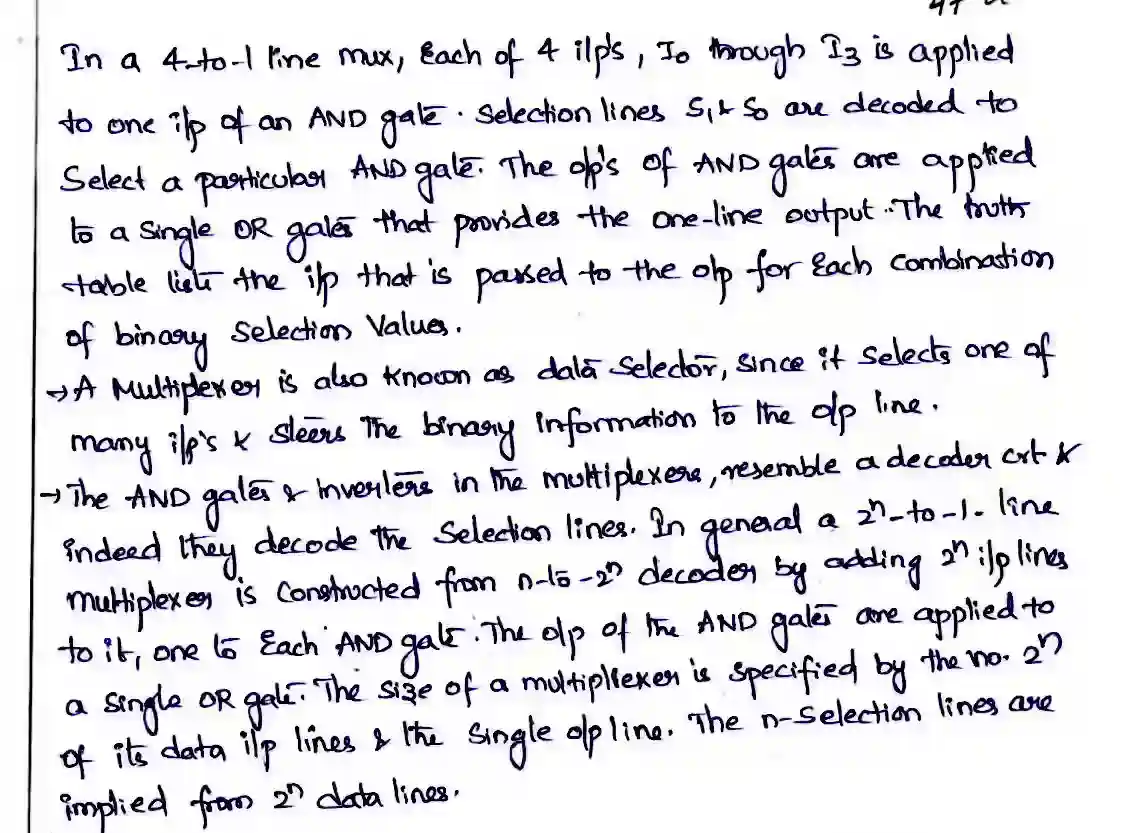 In a 4-to-1 line mux, Each of 4 i/p's, I0 through I3 is applied
to one i/p of an AND gate. Selection lines S1 & S0 are decoded to
Select a particular AND gate. The o/p's of AND gates are applied
to a single OR gates that provides the one-line output. The truth
table lists the i/p that is passed to the o/p for Each combination
of binary Selection Values.
→ A Multiplexer is also known as data selector, since it selects one of
many i/p's & steers The binary information to the o/p line.
→ The AND gates & inverters in the multiplexers, resemble a decoder crt &
indeed they decode the Selection lines. In general a 2ⁿ-to-1- line
multiplexer is constructed from n-to-2ⁿ decoder by adding 2ⁿ i/p lines
to it, one to Each AND gate. The o/p of the AND gates are applied to
a single OR gate. The size of a multiplexer is specified by the no. 2ⁿ
of its data i/p lines & the single o/p line. The n-selection lines are
implied from 2ⁿ data lines.